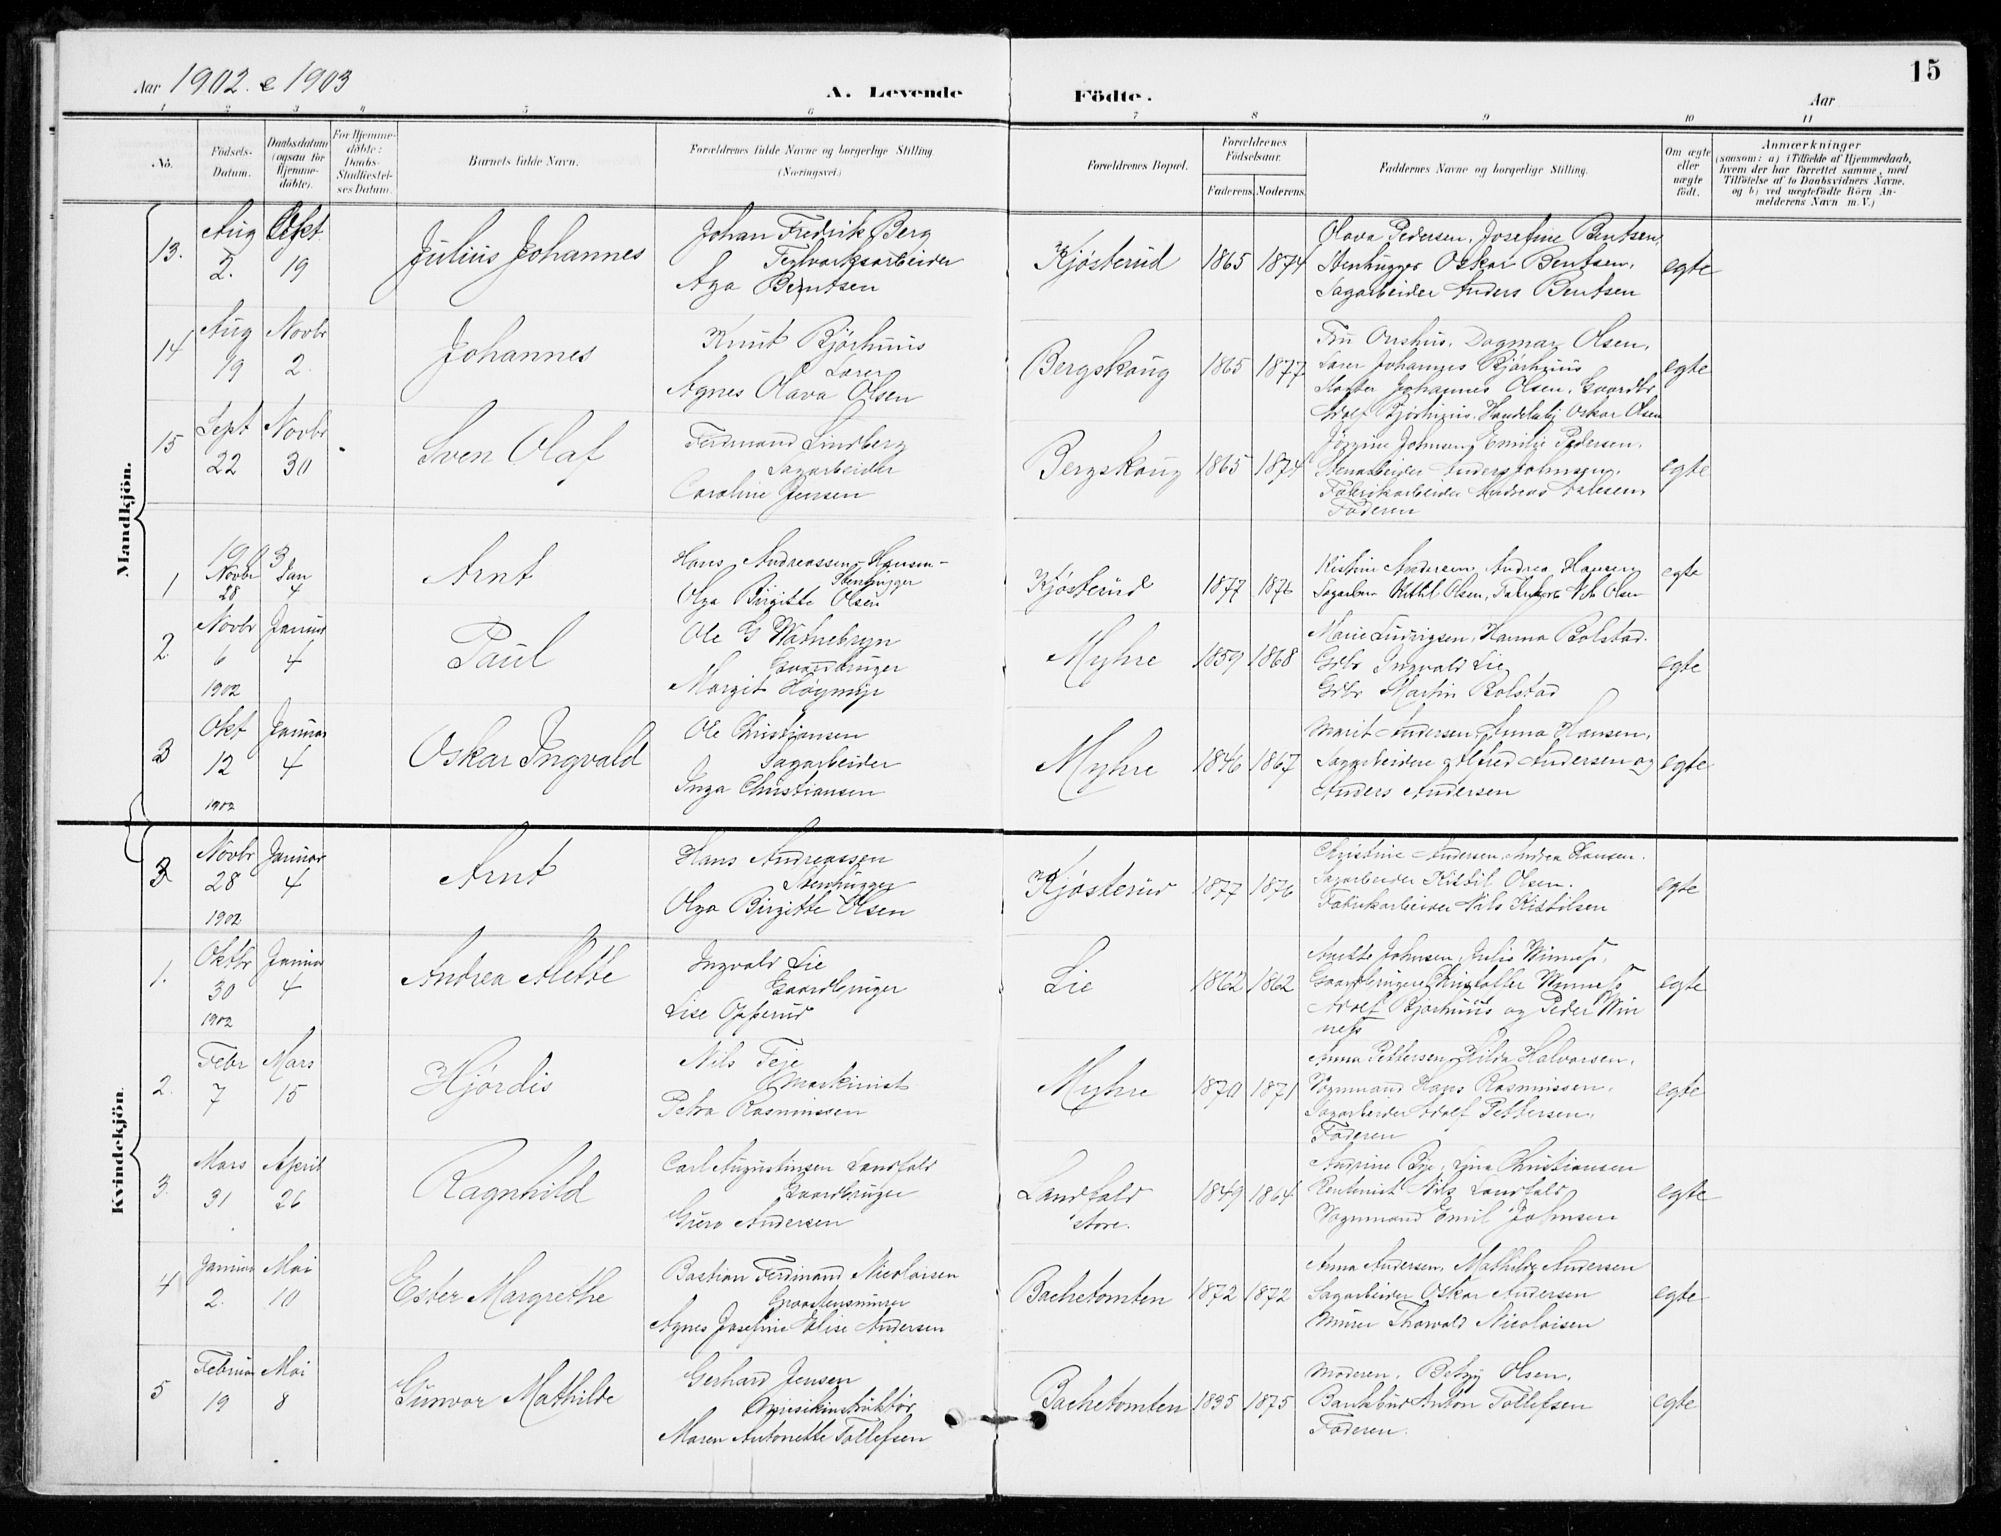 15
Aar 1902. e 1903
A. Levende Födte.
Aar
1 2 3 4 5 6 7 8 9 10 11
No.
Födsels-Datum.
Daabsdatum (ogsaa for Hjemme-döbte).
For Hjemme-döbte: Daabs-Stadfæstel-ses Datum.
Barnets fulde Navn.
Forældrenes fulde Navne og borgerlige Stilling. (Næringsvei)
Forældrenes Bopæl.
Forældrenes Födselsaar.
Faderens. Moderens.
Faddernes Navne og borgerlige Stilling.
Om ægte eller uægte födt.
Anmærkninger
(saasom: a) i Tilfælde af Hjemmedaab, hvem der har forrettet samme, med Tilföielse af to Daabsvidners Navne, og b) ved uægtefödte Börn An-melderens Navn m. V.)
Mandkjön.
13. Aug 2. Okt. 19 Julius Johannes
Johan Fredrik Berg
Teglverksarbeider
Aga Berntsen
Kjøsterud 1865 1874
Olava Pedersen, Josefine Bentsen,
Stenhugger Oskar Bentsen,
Sagarbeider Anders Bentsen
egte
14 Aug 19 Novbr 2. Johannes
Knut Bjørhuus
Lærer
Agnes Olava Olsen
Bergskoug 1865 1877
Fru Dagmar Olsen,
Lærer Johannes Bjørhuus
Johannes Olsen, Gaardbr
Adolf Bjørhuus, Oskar Olsen
egte
15 Sept 22 Novbr 30 Sven Olaf
Ferdinand Lindberg
Sagarbeider
Caroline Jensen
Bergskoug 1865 1874
Johnsen, Emilie Pedersen,
Stenarbeider Anders Johnsen,
Fabrikarbeider Andreas
Faderen
egte
1903
1 Novbr 28 Jan 4 Arnt
Hans Andreassen Hansen
Stenhugger
Olga Birgitte Olsen
Kjøsterud 1877 1876
Kistine Andersen, Andrea Hansen,
Sagarbm Kittil Olsen, Nils Olsen
egte
2. Novbr 6 1902 Januar 4 Paul
Ole G
Gaardbruger
Margit Høgmyr
Myhre 1859 1868
Marie Ludvigsen, Hanna Bolstad.
Grbr Ingvald Lie
Grbr Martin Bolstad
egte
3 Okt 12 1902 Januar 4 Oskar Ingvald
Ole Christiansen
Sagarbeider
Inga Christiansen
Myhre 1846 1867
Marit Andersen, Anna Hansen,
Sagarbeidere Alfred Andersen og
Anders Andersen
egte
3 Novbr 28 1902 Januar 4 Arnt
Hans Andreassen
Stenhugger
Olga Birgitte Olsen
Kjøsterud 1877 1876
Christine Andersen, Andrea Hansen.
Sagarbeider Kittil Olsen.
Fabrikarbeider Nils Kittilsen
egte
Kvindekjön.
1. Oktbr 30 1902 Januar 4 Andrea Alette
Ingvald Lie
Gaardbruger
Lise Opperud
Lie 1862 1862
Anette Johnsen, Julie Winnes,
Gaardbrugere Kristoffer Winnes
Adolf Bjørhuus og Peder Win
nes
egte
2. Febr 7 Mars 15 Hjørdis
Nils Teje
Maskinist
Petra Rasmussen
Myhre 1870 1871
Anna Pettersen, Hilda Halvorsen,
Vognmand Hans Rasmussen,
Sagarbeider Adolf Pettersen,
Faderen
egte
3. Mars 31 April 26 Ragnhild
Carl Augustinsen Landfald
Gaardbruger
Guro Andersen
Landfald store. 1849 1864
Andrine Bye, Lina Christiansen
Rentenist Nils Landfald
Vognmand Emil Johnsen
egte
4 Januar 2. Mai 10 Ester Margrethe
Bastian Ferdinand Nicolaisen
Graastensmurer
Agnes Josefine Elise Andersen
Bachetomten 1872 1872
Anna Andersen, Mathilde Andersen
Sagarbeider Oskar Andersen
Murer Thorvald Nicolaisen
egte
5 Februar 19 Mai 8 Gunvor Mathilde
Gerhard Jensen
Maren Antonette Tollefsen
Bachetomten 1835 1875
Moderen, Betzy Olsen,
Anton Tollefsen
Faderen.
egte